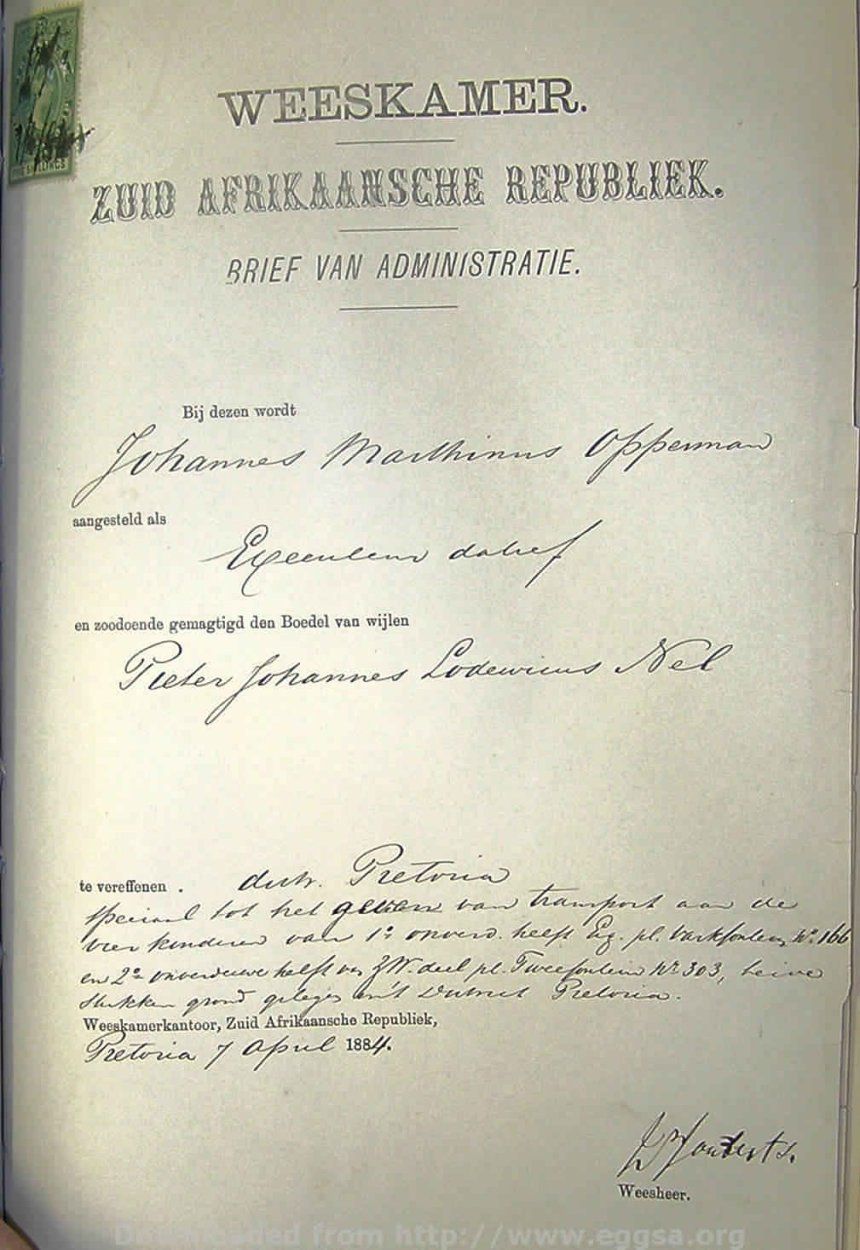 WEESKAMER.
ZUID AFRIKAANSCHE REPUBLIEK.
BRIEF VAN ADMINISTRATIE.
Bij dezen wordt
Johannes Marthinus Opperman
aangesteld als
Executeur datief
en zoodoende gemagtigd den Boedel van wijlen
Pieter Johannes Lodewicus Nel
te vereffenen . distr. Pretoria
speciaal tot het geven van transport aan de
vier kinderen van 1º onverd. helft Eig. pl. Varkfontein, Nº 166
en 2º onverdeelde helft van ZW. deel pl. Tweefontein Nº 303, beide
stukken grond gelegen in't District Pretoria.
Weeskamerkantoor, Zuid Afrikaansche Republiek,
Pretoria 7 April 1884.
Weesheer.
Downloaded from http://www.eggsa.org